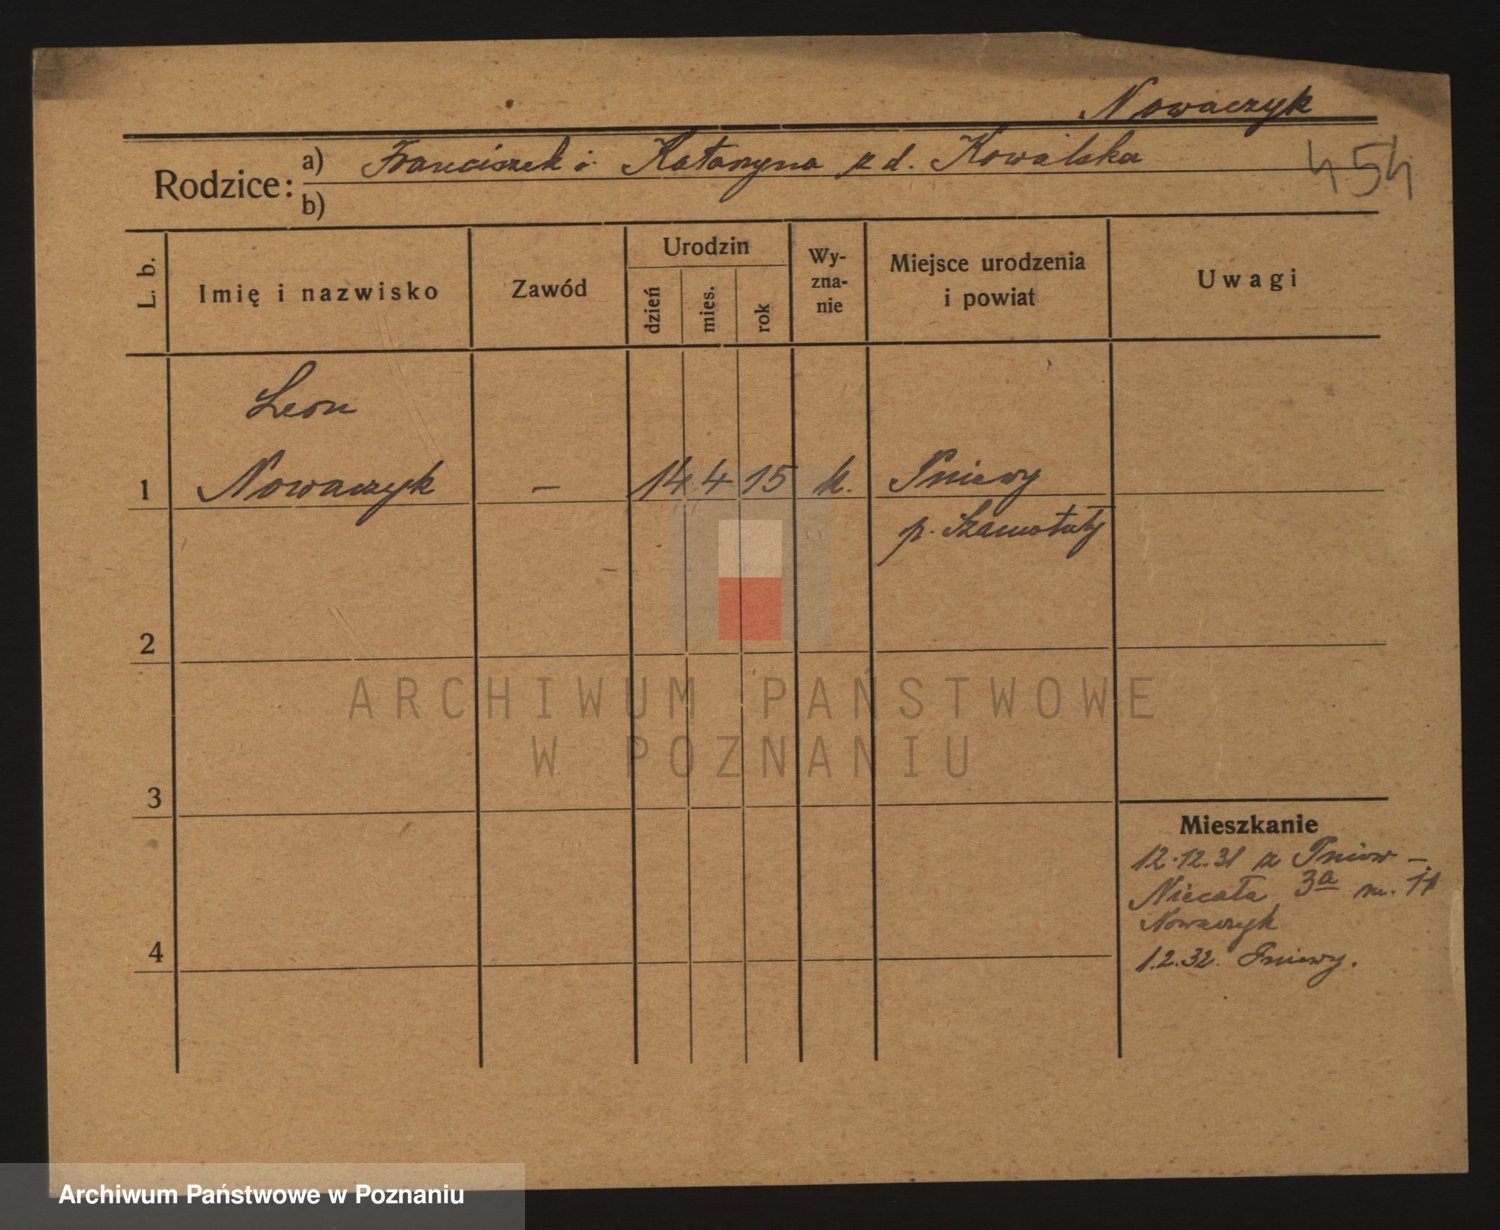 Nowaczyk
Rodzice: a) Franciszek i Katarzyna z d. Kowalska
454
b)
L. b.
Imię i nazwisko
Zawód
Urodzin
dzień
mies.
rok
Wy-
zna-
nie
Miejsce urodzenia
i powiat
Uwagi
Leon
1 Nowaczyk — 14 4 15 k. Pniewy
p. Szamotuły
2
ARCHIWUM PAŃSTWOWE
W POZNANIU
3
Mieszkanie
12.12.31 z Pniew –
Niecała 3a m. 11
Nowaczyk
4
1.2.32. Pniewy.
Archiwum Państwowe w Poznaniu